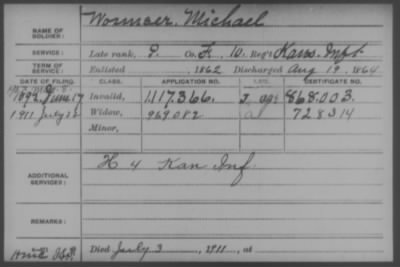 NAME OF SOLDIER: Wormser, Michael
SERVICE: Late rank, P. Co. K, 10. Reg't Kans. Inft.
TERM OF SERVICE: Enlisted , 1862 Discharged Aug 19, 1864
DATE OF FILING. CLASS. APPLICATION NO. CERTIFICATE NO.
1892 June 17 Invalid, 1.117.366. 868.003.
1911 July Widow, 969082 728314
Minor,
ADDITIONAL SERVICES: H 4 Kan Inf.
REMARKS:
Died July 3 , 1911, at